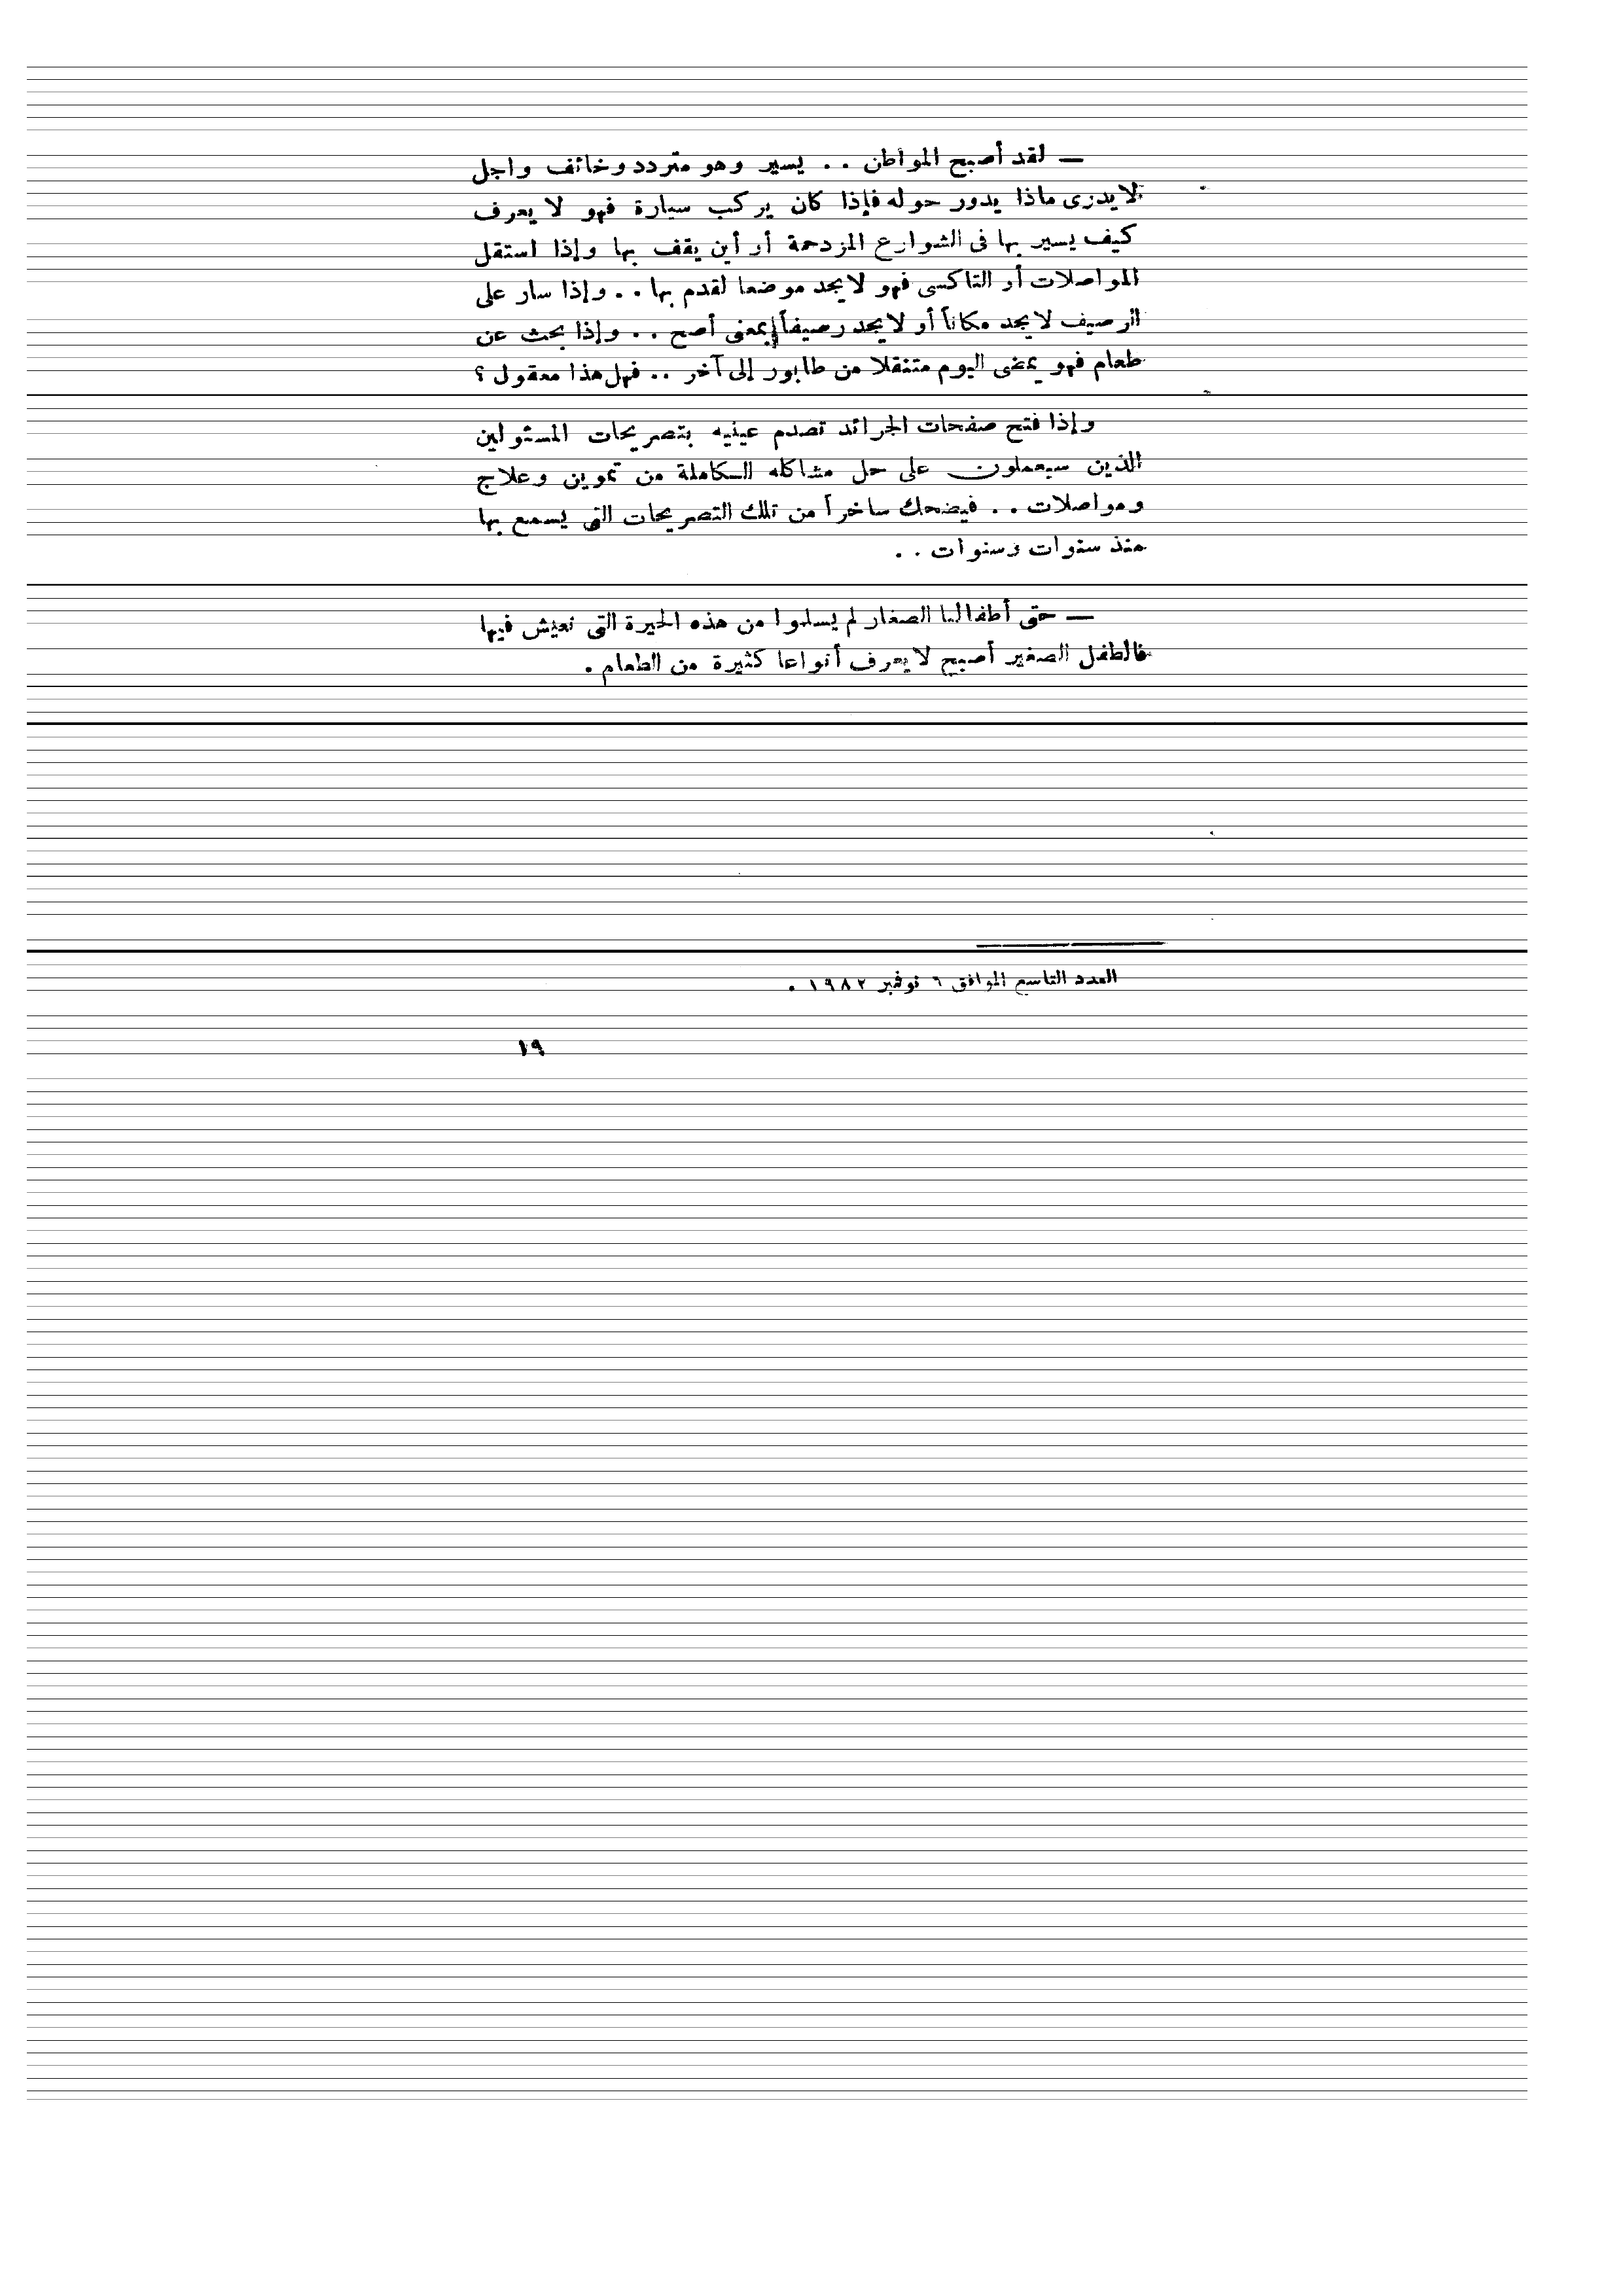 — لقد أصبح المواطن . . يسير وهو متردد وخائف واجل
لا يدرى ماذا يدور حوله فإذا كان يركب سيارة فهو لا يعرف
كيف يسير بها فى الشوارع المزدحمة أو أين يقف بها وإذا استقل
المواصلات أو التاكسى فهو لا يجد موضعا لقدم بها . . وإذا سار على
الرصيف لا يجد مكاناً أو لا يجد رصيفاً بمعنى أصح . . وإذا بحث عن
طعام فهو يمضى اليوم متنقلا من طابور إلى آخر . . فهل هذا معقول ؟
وإذا فتح صفحات الجرائد تصدم عينيه بتصريحات المسئولين
الذين سيعملون على حل مشاكله الكاملة من تموين وعلاج
ومواصلات . . فيضحك ساخراً من تلك التصريحات التى يسمع بها
منذ سنوات وسنوات . .
— حتى أطفالنا الصغار لم يسلموا من هذه الحيرة التى نعيش فيها
فالطفل الصغير أصبح لا يعرف أنواعا كثيرة من الطعام .
العدد التاسع الموافق ٦ نوفمبر ١٩٨٢ .
١٩